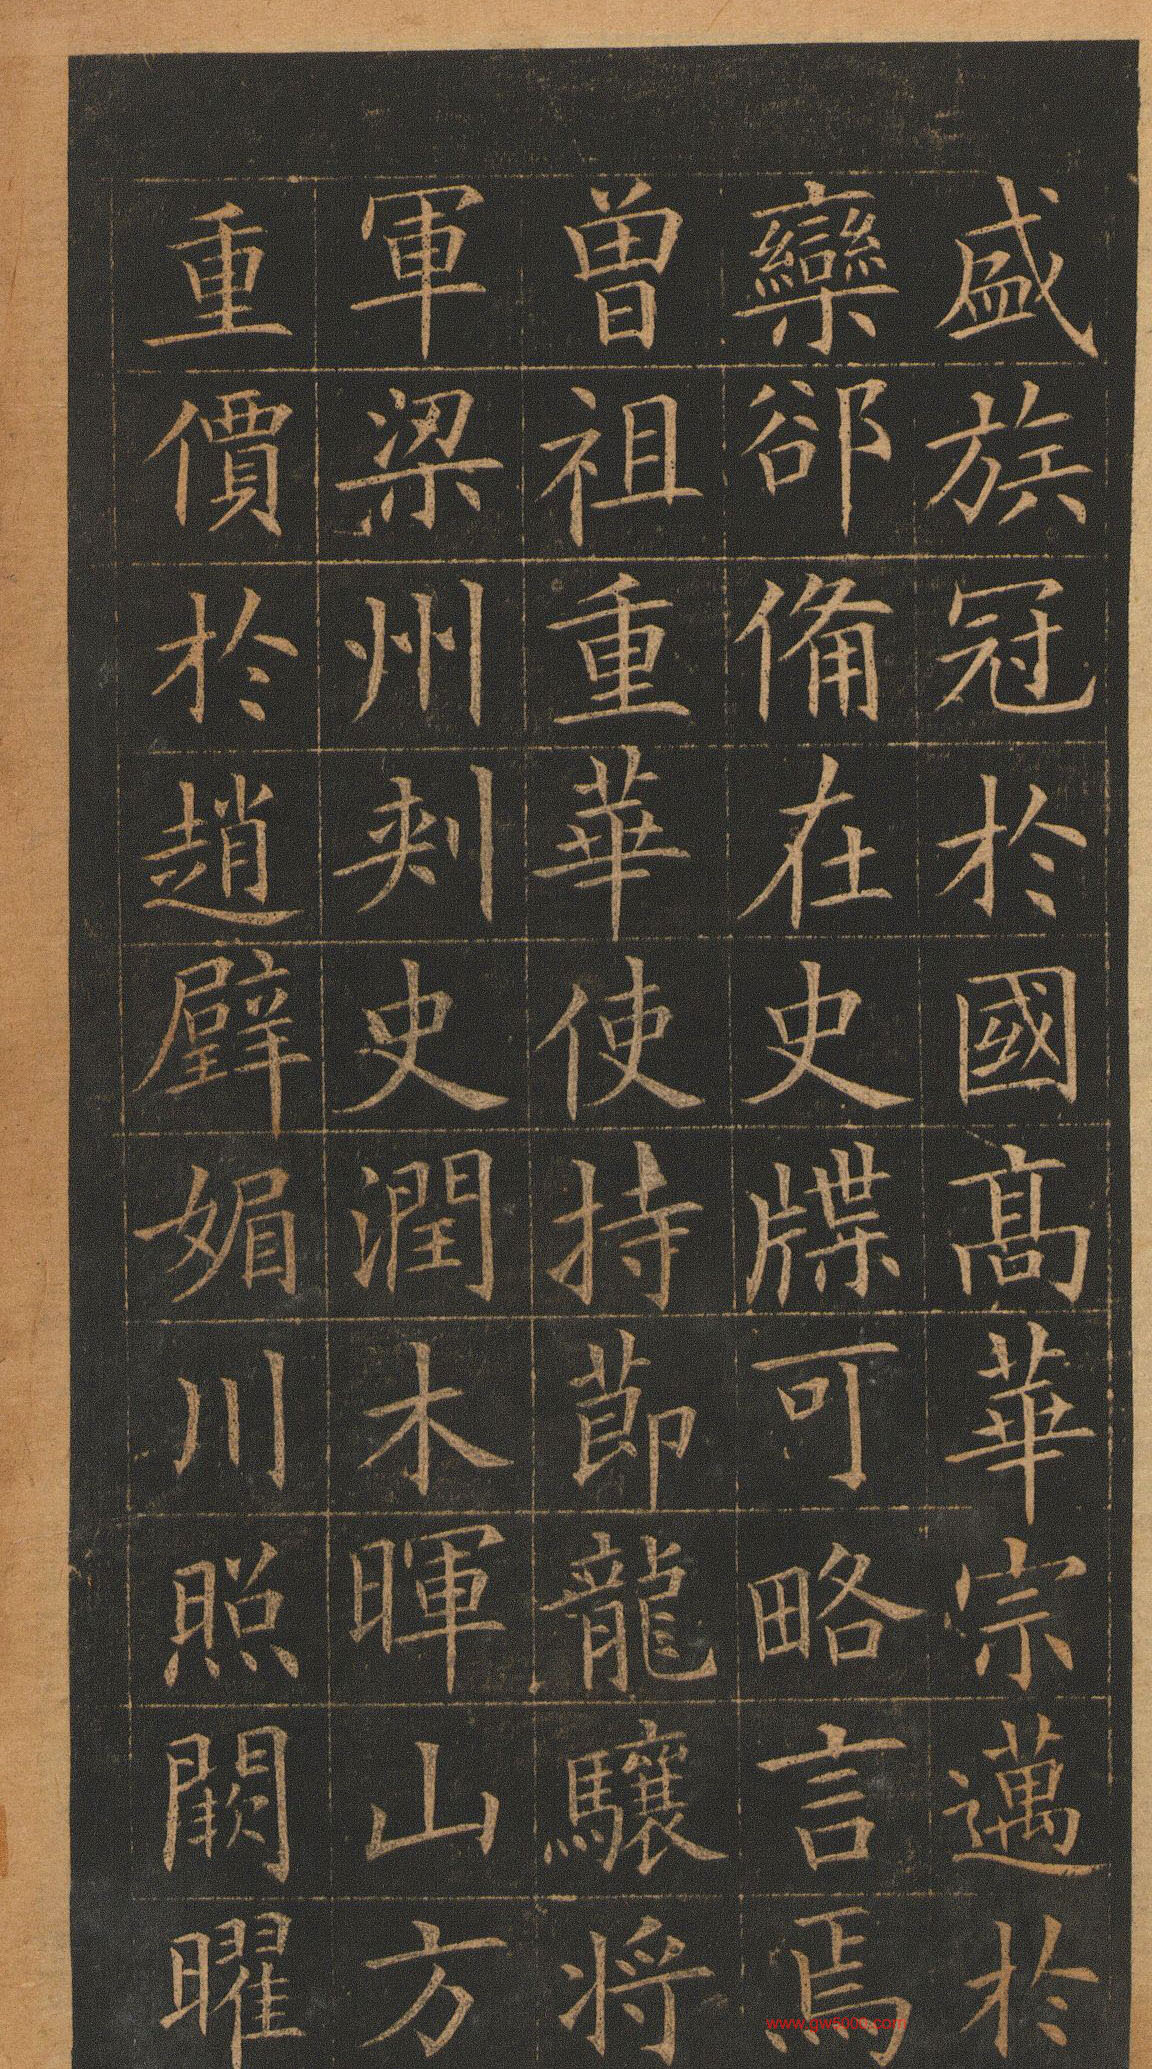 盛族冠於國高華宗邁於
欒郤備在史牒可略言焉
曾祖重華使持節龍驤将
軍梁州刾史潤木暉山方
重價於趙璧媚川照闕曜
www.qw5000.com